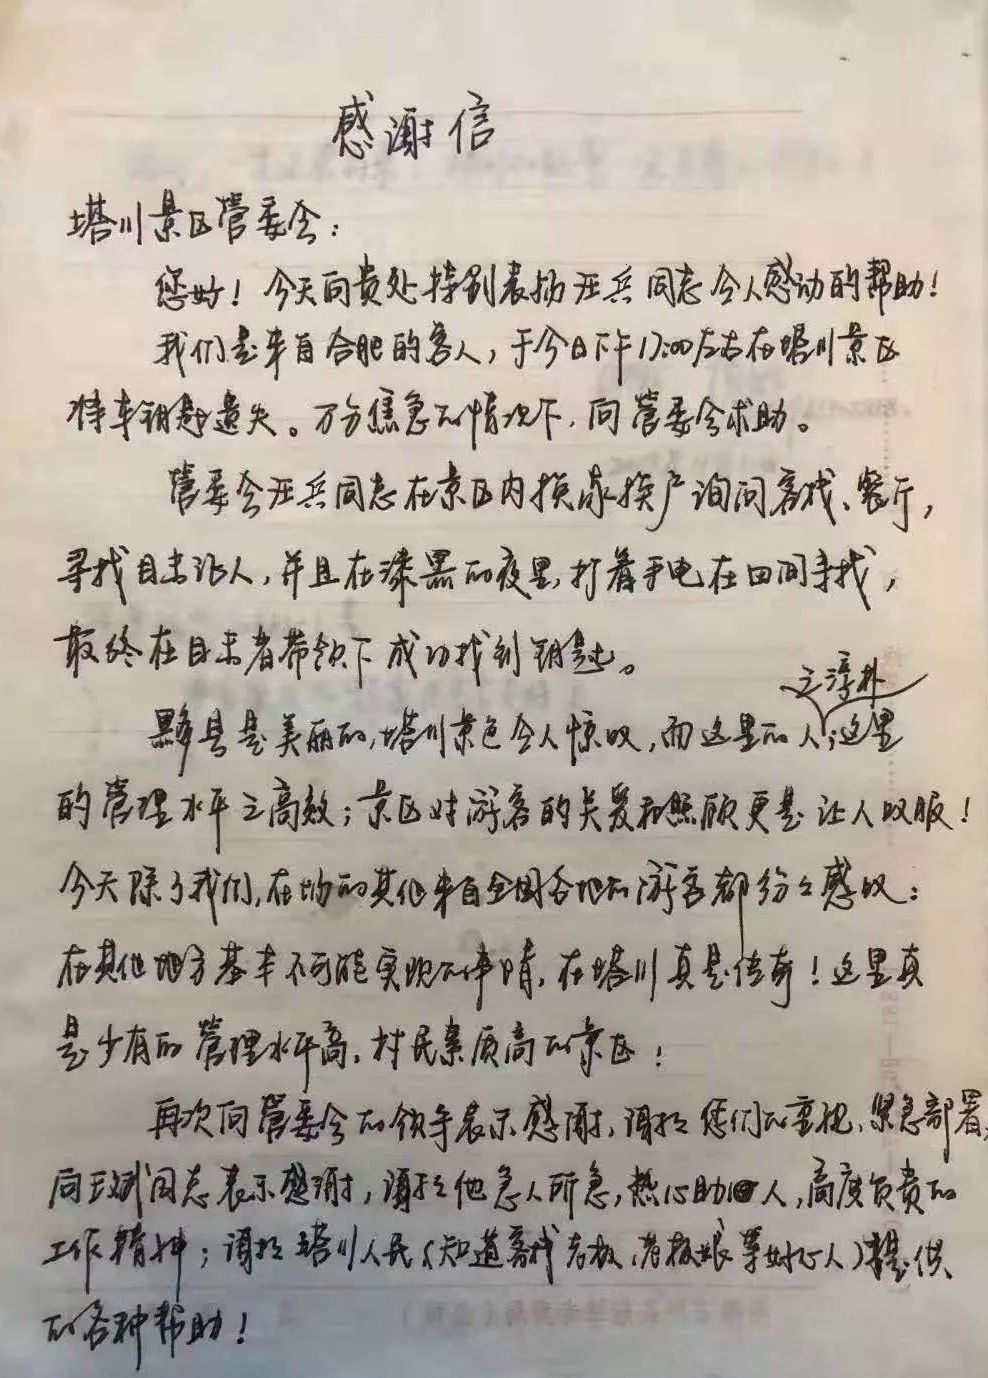 感谢信
塔川景区管委会：
您好！今天向贵处特别表扬汪兵同志令人感动的帮助！
我们是来自合肥的客人，于今日下午17:00左右在塔川景区
将车钥匙遗失。万分焦急的情况下，向管委会求助。
管委会汪兵同志在景区内挨家挨户询问客栈、餐厅，
寻找目击证人，并且在漆黑的夜里，打着手电在田间寻找，
最终在目击者带领下成功找到钥匙。
黟县是美丽的，塔川景色令人惊叹，而这里的人之淳朴，这里
的管理水平之高效；景区对游客的关爱和照顾更是让人叹服！
今天除了我们，在场的其他来自全国各地的游客都纷々感叹：
在其他地方基本不可能实现的事情，在塔川真是传奇！这里真
是少有的管理水平高，村民素质高的景区！
再次向管委会的领导表示感谢，谢谢您们的重视，紧急部署，
向王斌同志表示感谢，谢谢他急人所急，热心助人，高度负责的
工作精神；谢谢塔川人民（知道客栈老板、老板娘等好心人）提供
的各种帮助！